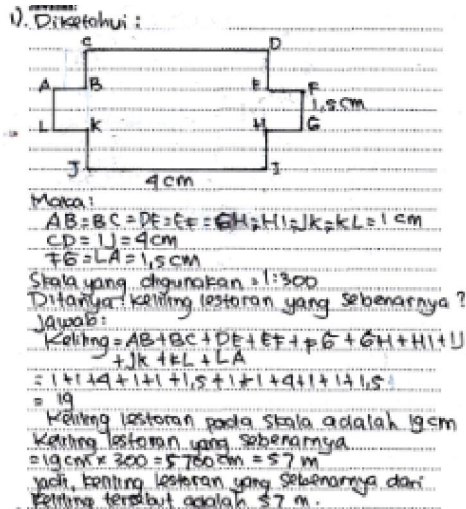 1). Diketahui :
C D
A B E F
1,5 cm
L K H G
J I
4 cm
Maka :
AB = BC = DE = EF = GH = HI = JK = KL = 1 cm
CD = IJ = 4cm
FG = LA = 1,5 cm
Skala yang digunakan = 1:300
Ditanya : keliling lestoran yang sebenarnya ?
Jawab :
Keliling = AB + BC + DE + EF + FG + GH + HI + IJ
+ JK + KL + LA
= 1 + 1 + 4 + 1 + 1 + 1,5 + 1 + 1 + 4 + 1 + 1 + 1,5
= 19
Keliling lestoran pada skala adalah 19 cm
Keliling lestoran yang sebenarnya
= 19 cm × 300 = 5700 cm = 57 m
Jadi, keliling lestoran yang sebenarnya dari
keliling tersebut adalah 57 m.